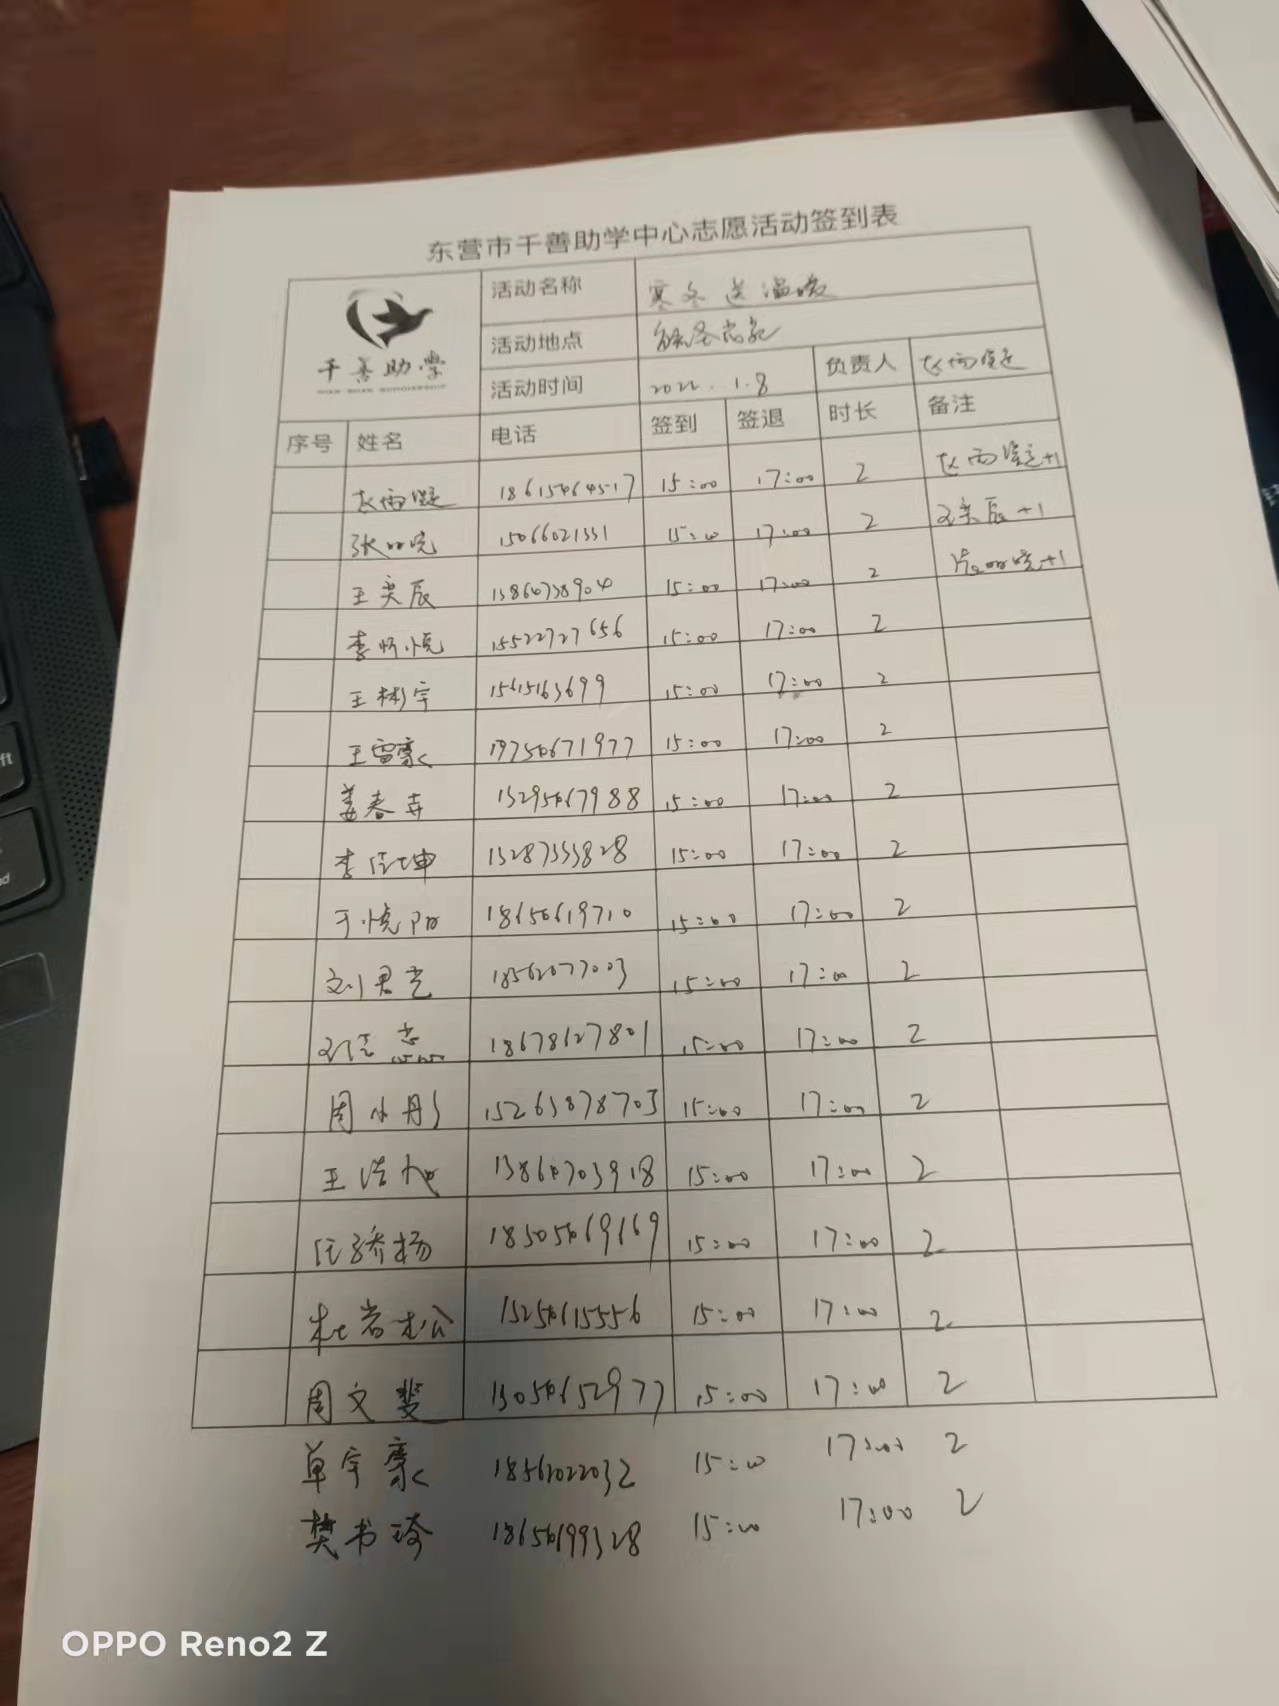 东营市千善助学中心志愿活动签到表
千善助学
活动名称 寒冬送温暖
活动地点
活动时间 2022.1.8 负责人 赵雨凝
序号 姓名 电话 签到 签退 时长 备注
赵雨凝 18615464517 15:00 17:00 2 赵雨凝+1
张晓 15066021331 15:00 17:00 2 王奕辰+1
王奕辰 13864738904 15:00 17:00 2 +1
李昕悦 15522727656 15:00 17:00 2
王彬宇 15615163699 15:00 17:00 2
王雷豪 19754671977 15:00 17:00 2
姜春卉 13295467988 15:00 17:00 2
李佳坤 15:00 17:00 2
于悦阳 18654619710 15:00 17:00 2
刘君 18562077003 15:00 17:00 2
18678627801 15:00 17:00 2
周小彤 15263878703 15:00 17:00 2
王浩 13864703918 15:00 17:00 2
任骄扬 18505469169 15:00 17:00 2
杜岩松 15254615556 15:00 17:00 2
周文斐 13054652977 15:00 17:00 2
单宇豪 18562022032 15:00 17:00 2
樊书琦 18654699328 15:00 17:00 2
OPPO Reno2 Z